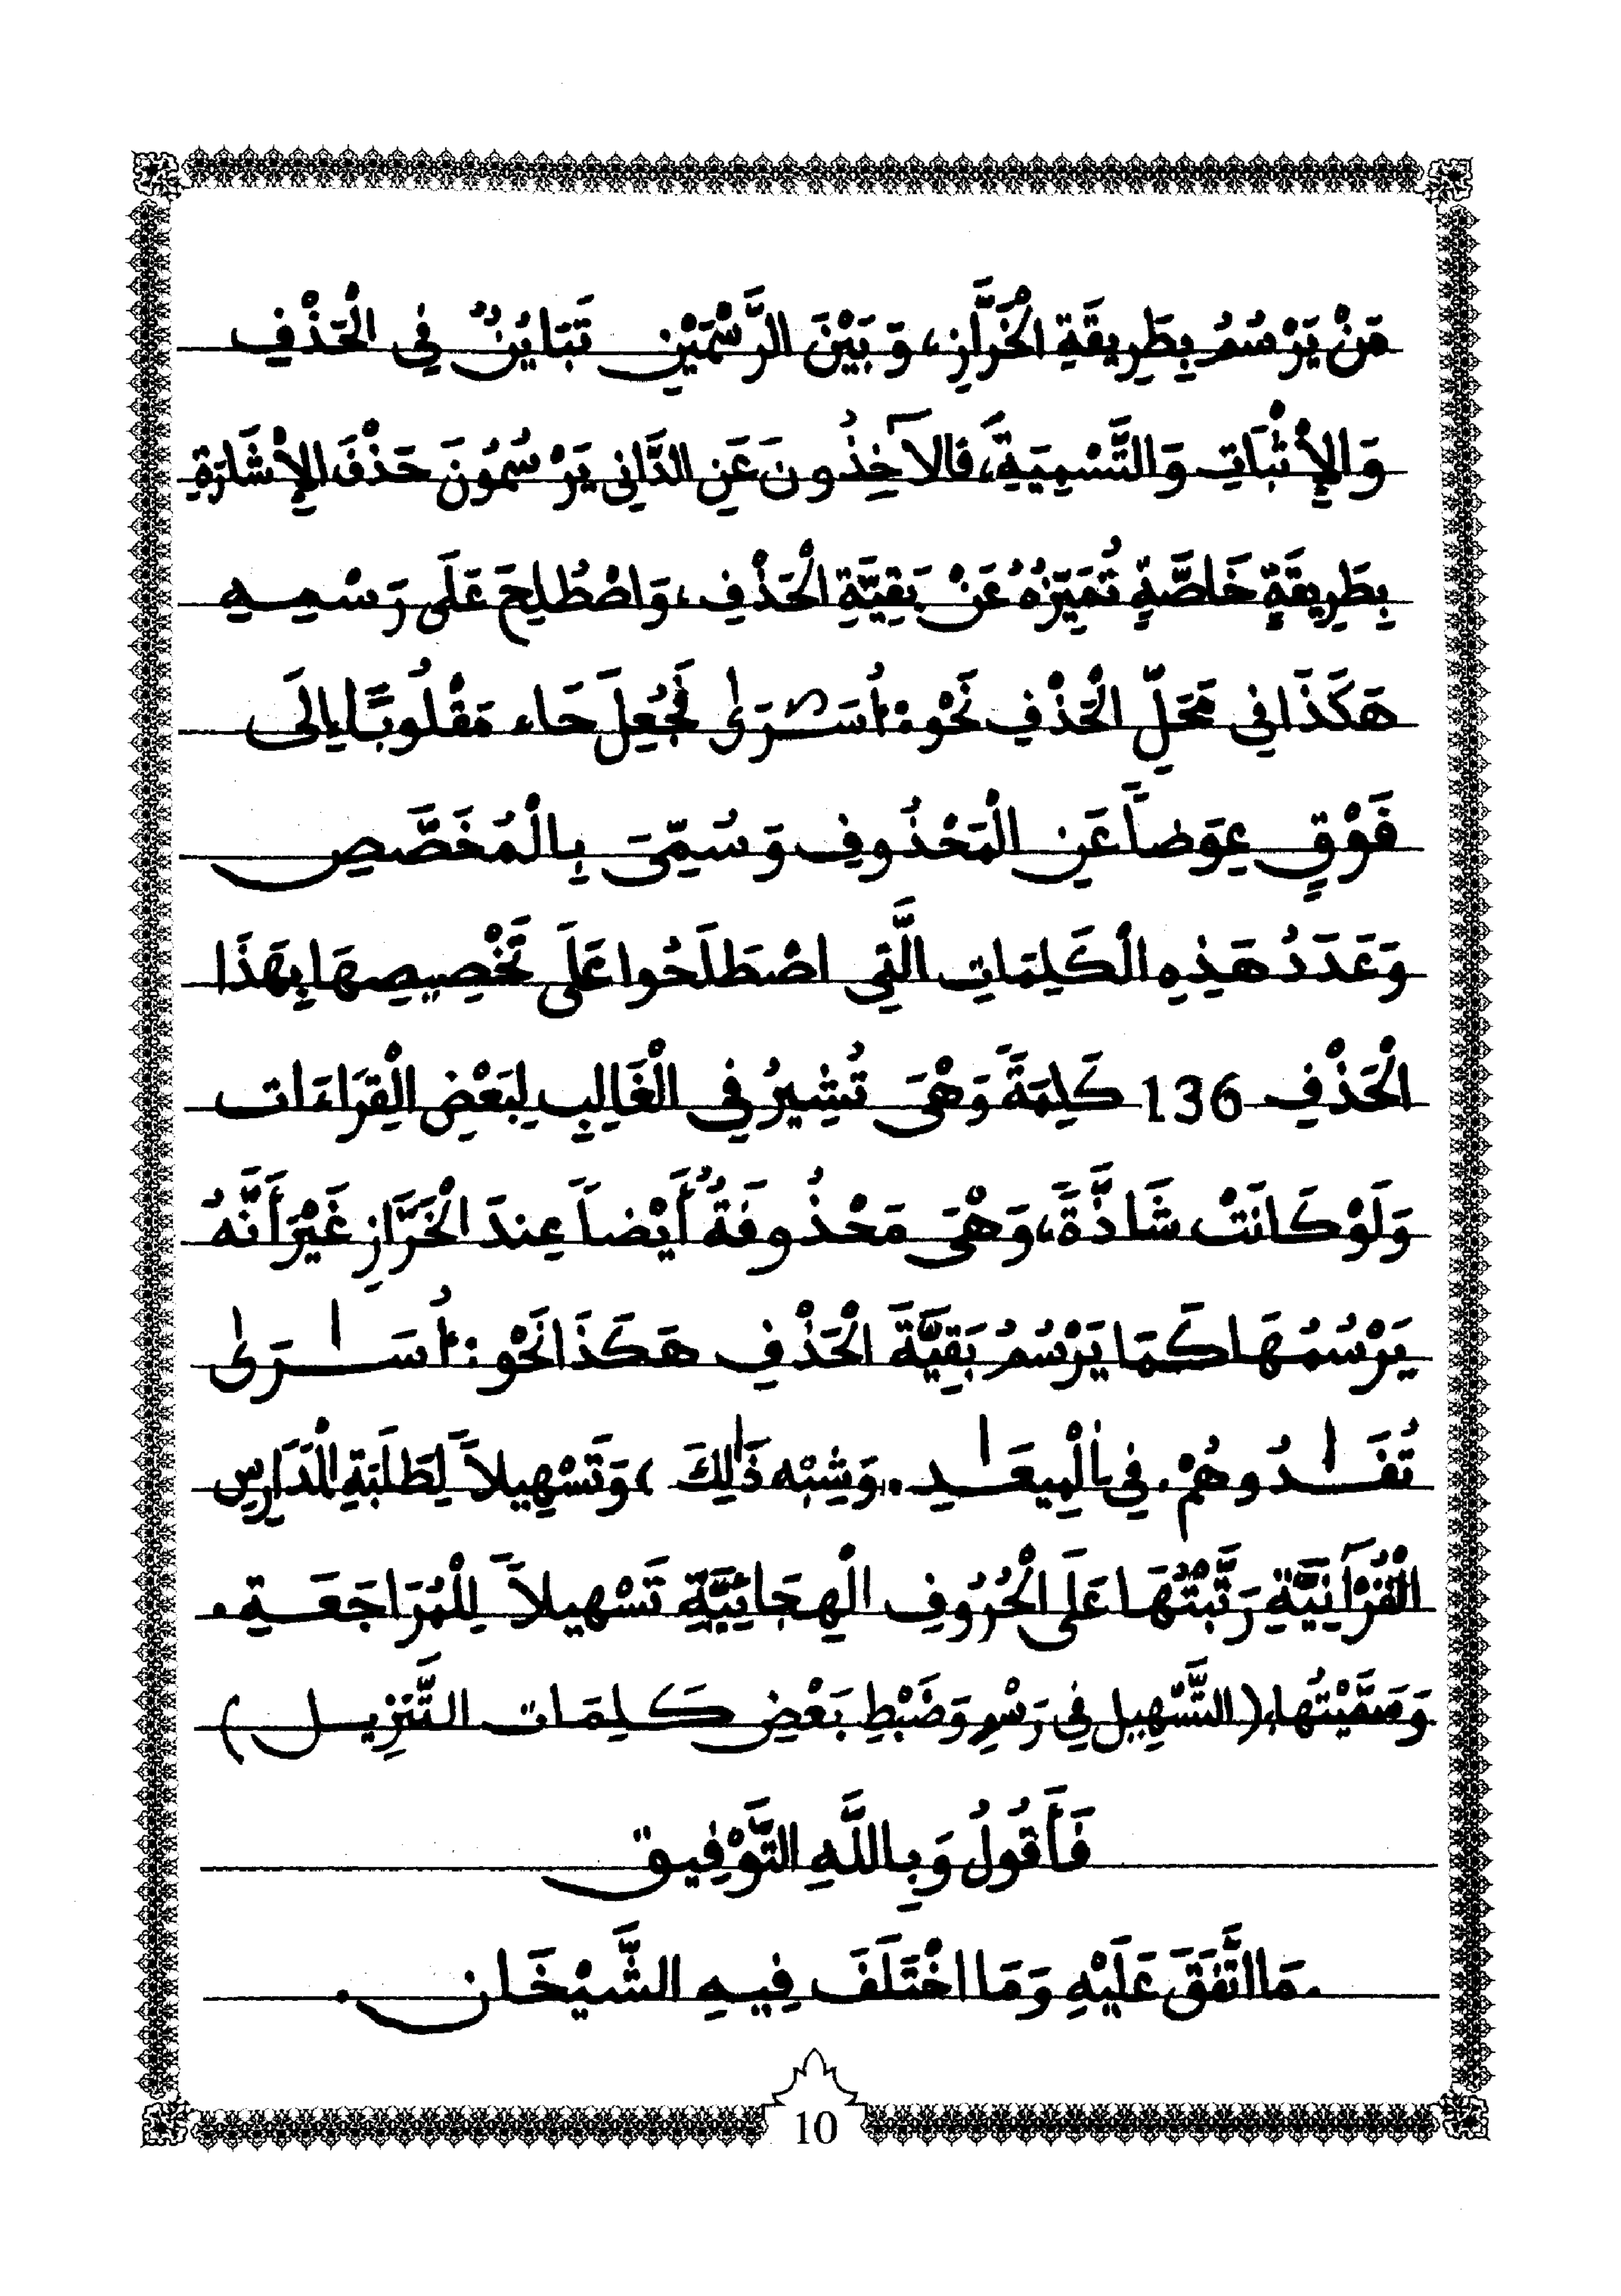 مَنْ يَرْسُمُ بِطَرِيقَةِ الْخَرَّازِ، وَبَيْنَ الرَّسْمَيْنِ تَبَايُنٌ فِي الْحَذْفِ
وَالإِثْبَاتِ وَالتَّسْمِيَةِ، فَالآخِذُونَ عَنِ الدَّانِي يَرْسُمُونَ حَذْفَ الإِشَارَةِ
بِطَرِيقَةٍ خَاصَّةٍ تُمَيِّزُهُ عَنْ بَقِيَّةِ الْحَذْفِ، وَاصْطُلِحَ عَلَى رَسْمِهِ
هَكَذَا فِي مَحَلِّ الْحَذْفِ نَحْوَ: أُسَـٰرَىٰ فَجُعِلَ حَاء مَقْلُوبًا إِلَى
فَوْقٍ عِوَضاً عَنِ الْمَحْذُوفِ وَسُمِّيَ بِالْمُخَصَّصِ
وَعَدَدُ هَذِهِ الْكَلِمَاتِ الَّتِي اصْطَلَحُوا عَلَى تَخْصِيصِهَا بِهَذَا
الْحَذْفِ 136 كَلِمَةً وَهْيَ تُشِيرُ فِي الْغَالِبِ لِبَعْضِ الْقِرَاءَات
وَلَوْ كَانَتْ شَاذَّةً، وَهْيَ مَحْذُوفَةٌ أَيْضاً عِندَ الْخَرَّازِ غَيْرَ أَنَّهُ
يَرْسُمُهَا كَمَا يَرْسُمُ بَقِيَّةَ الْحَذْفِ هَكَذَا نَحْوَ: أُسَـٰرَىٰ
تُفَـٰدُوهُمْ. فِي الْمِيعَـٰدِ. وَشِبْه ذَٰلِكَ، وَتَسْهِيلاً لِطَلَبَةِ الْمَدَارِسِ
الْقُرْآنِيَّةِ رَتَّبْتُهَا عَلَى الْحُرُوفِ الْهِجَائِيَّةِ تَسْهِيلاً لِلْمُرَاجَعَـةِ.
وَسَمَّيْتُهَا، (التَّسْهِيل فِي رَسْمِ وَضَبْطِ بَعْضِ كَلِمَات التَّنزِيـل)
فَأَقُولُ وَبِاللَّهِ التَّوْفِيق
.مَا اتَّفَقَ عَلَيْهِ وَمَا اخْتَلَفَ فِيهِ الشَّيْخَان.
10